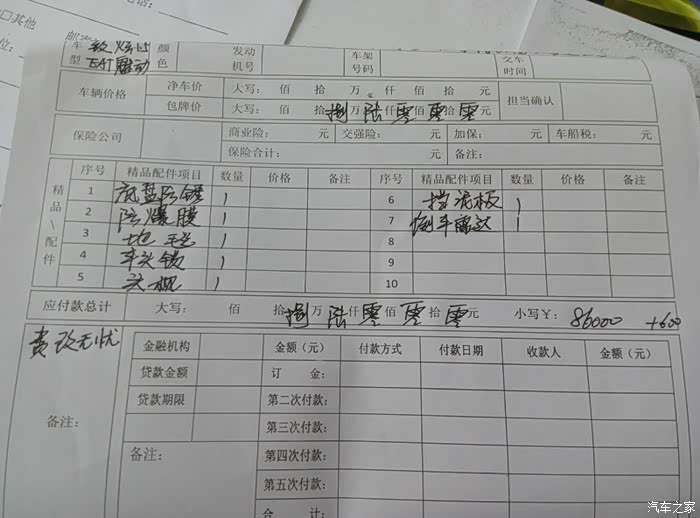 口其他
车 款 炫 颜 发动 车架 交车
型 EAT 雕动 色 机号 号码 时间
车辆价格 净车价 大写: 佰 拾 万 仟 佰 拾 元 担当确认
包牌价 大写: 佰 拾捌万陆仟零佰零拾零元
保险公司 商业险: 元 交强险: 元 加保: 元 车船税: 元
保险合计: 元 备注:
精品\配件 序号 精品配件项目 数量 价格 备注 序号 精品配件项目 数量 价格 备注
1 底盘防锈 1 6 挡泥板 1
2 防爆膜 1 7 倒车雷达 1
3 地毯 1 8
4 车头锁 1 9
5 头枕 1 10
应付款总计 大写: 佰 拾捌万陆仟零佰零拾零元 小写¥: 86000 +600
费改无忧 金融机构 金额(元) 付款方式 付款日期 收款人 金额(元)
贷款金额 订 金:
贷款期限 第二次付款:
备注: 第三次付款:
备注: 第四次付款:
第五次付款:
合 计:
汽车之家